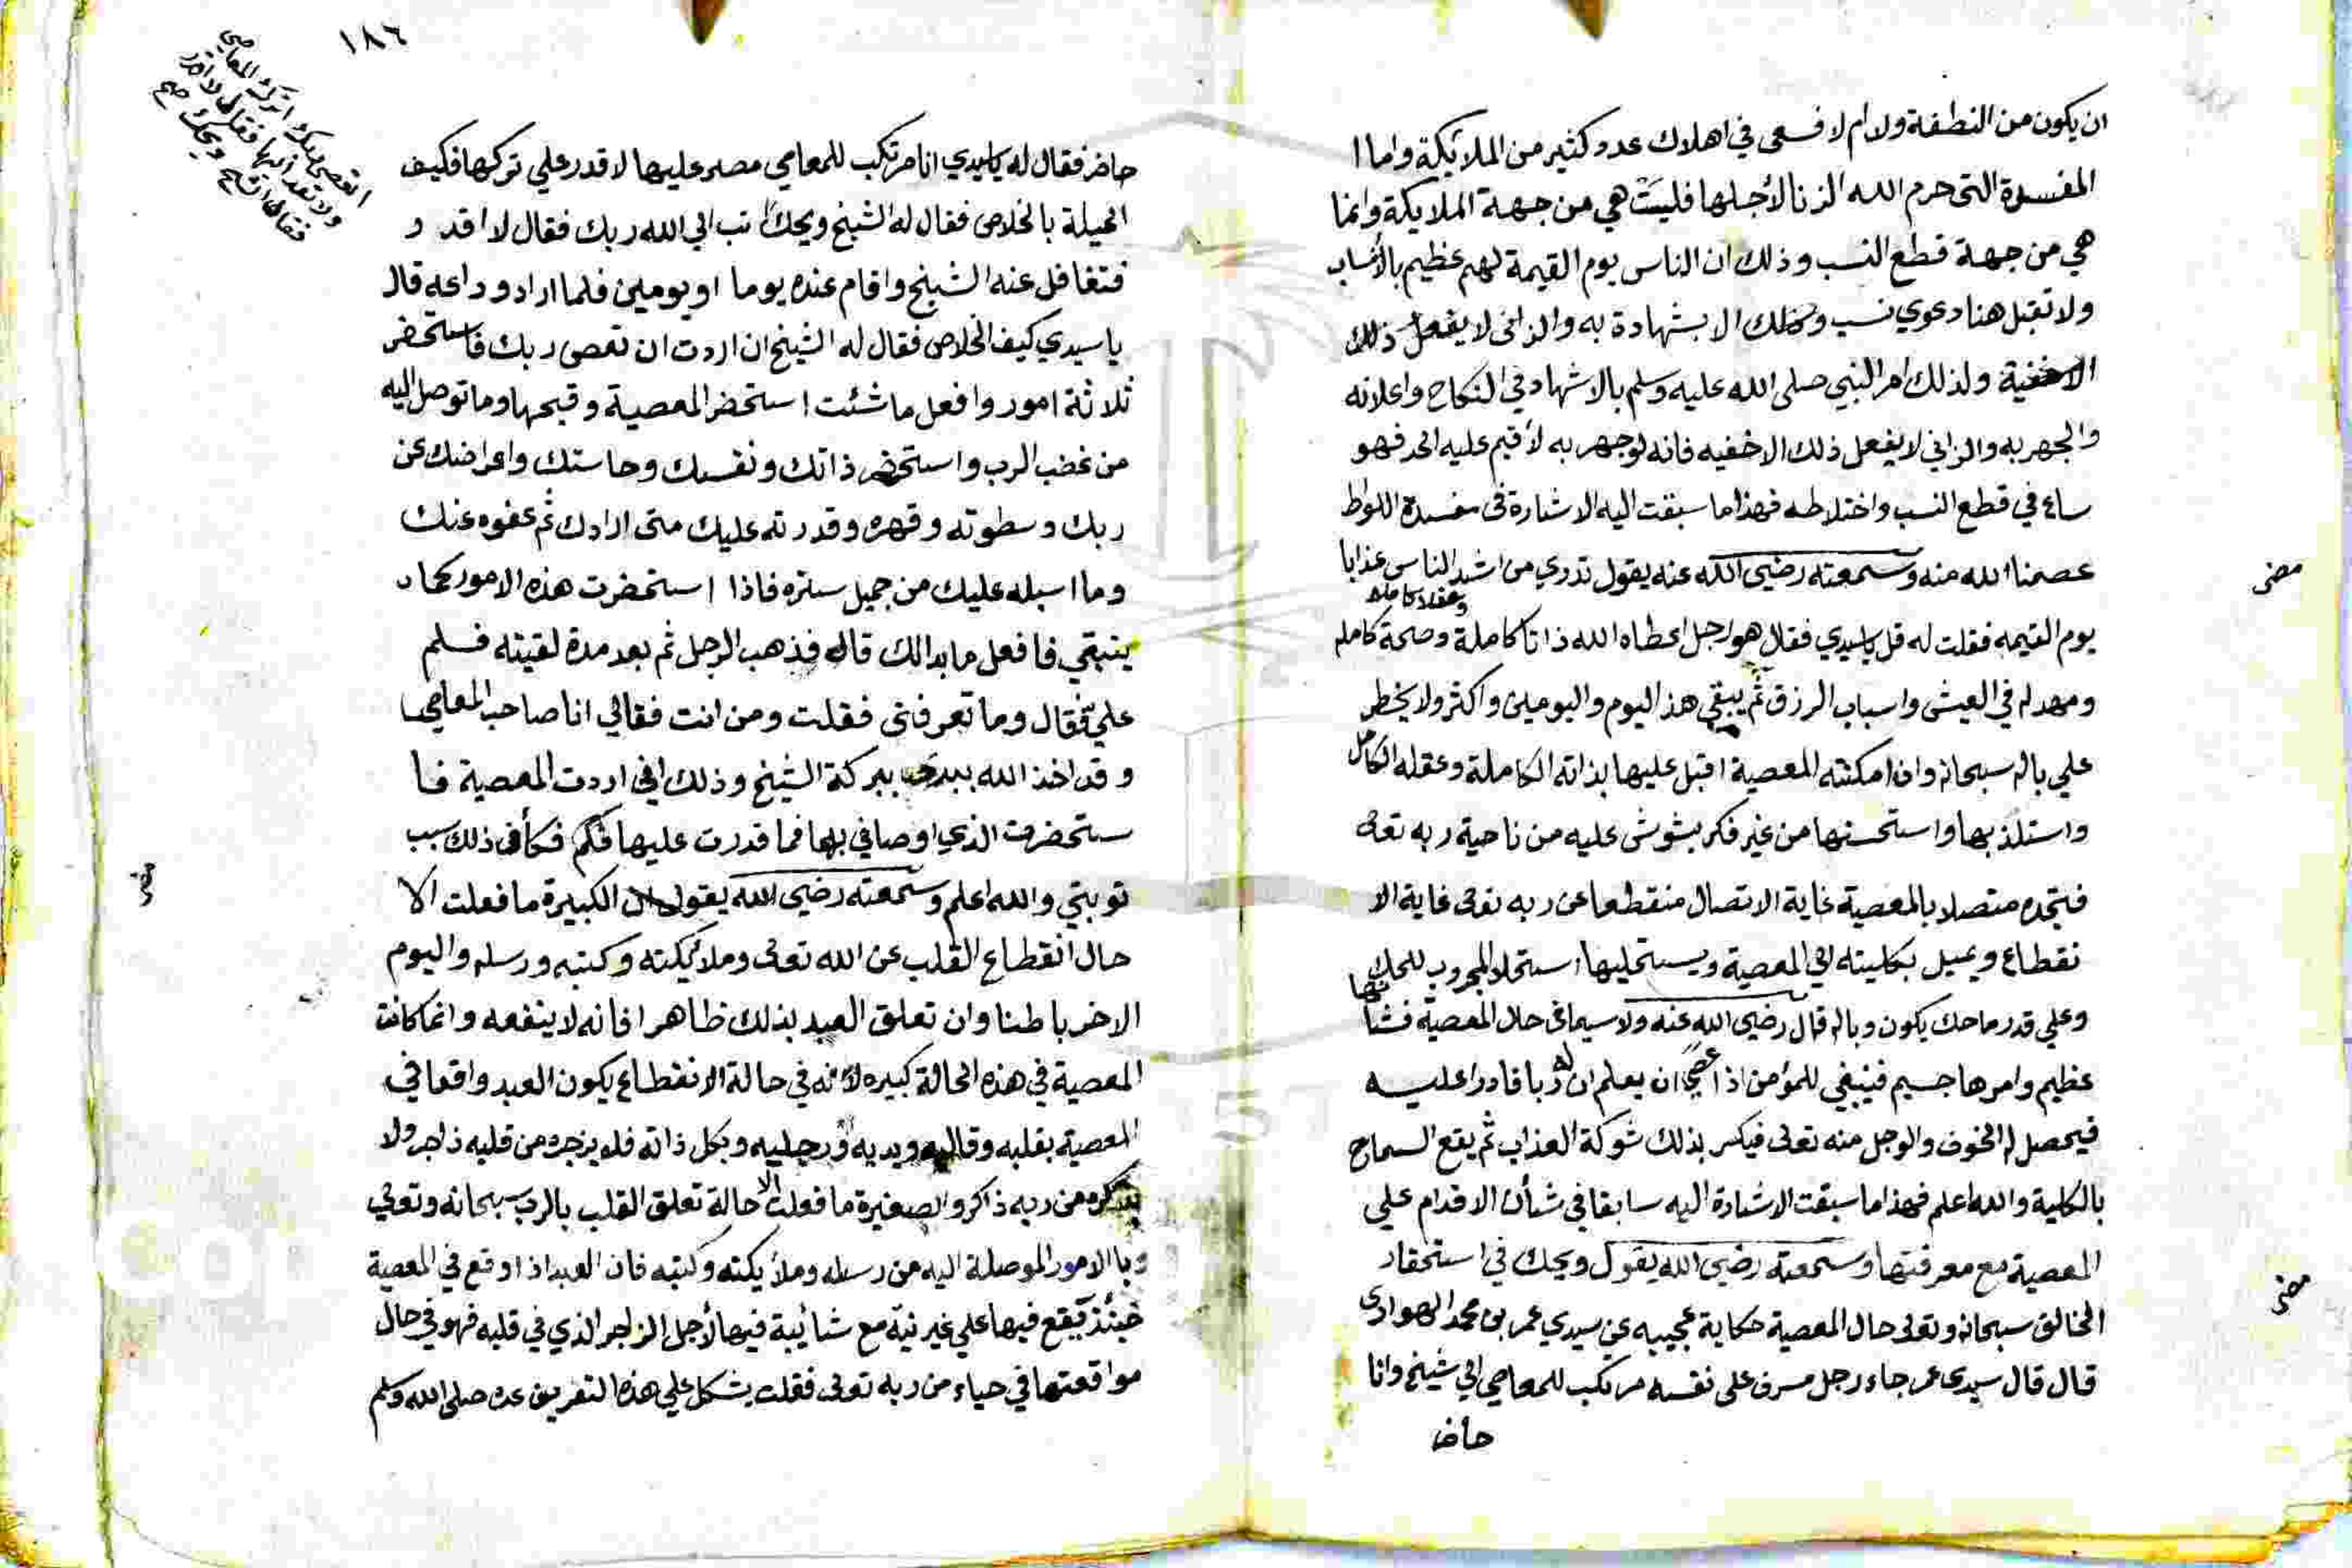 ان يكون من النطفة ولد ام لا فسعى في اهلاك عدد كثير من الملائكة واما ا
المفسدة التى حرم الله الزنا لأجلها فليسَتْ هي من جهة الملايكة وانما
هي من جهة قطع النسب وذلك ان الناس يوم القيمة لهم عظيم بالأنساب
ولا تقبل هنا دعوي نسب وكذلك الا بشهادة به والزانى لا يفعل ذلك
الاخفية ولذلك امر النبي صلى الله عليه وسلم بالاشهاد في النكاح واعلانه
والجهر به والزاني لا يفعل ذلك الاخفيه فانه لو جهر به لأقيم عليه الحد فهو
ساع في قطع النسب واختلاطه فهذا ما سبقت اليه الاشارة فى مفسدة اللواط
عصمنا الله منه وسمعته رضي الله عنه يقول تدري من اشد الناس عذابا
مضى
يوم القيمه فقلت له قل يا سيدي فقال هو رجل اعطاه الله ذاتا كاملة وعقلا كاملا وصحة كامله
ومهد له في العيش واسباب الرزق ثم يبقي هذ اليوم واليومين واكثر ولا يخطر
علي باله سبحانه واذا امكنته المعصية اقبل عليها بذاته الكاملة وعقله الكامل
واستلذ بها واستحسنها من غير فكر يشوش عليه من ناحية ربه تعالى
فتجده متصلا بالمعصية غاية الاتصال منقطعا عن ربه تعالى غاية الا
نقطاع ويميل بكليته الي المعصية ويستحليها استحلا المجروب للحك
وعلي قدر ما حك يكون وباله قال رضي الله عنه ولا سيما فى حال المعصية فشأنها
عظيم وامرها جسيم فينبغي للمؤمن اذا عصي ان يعلم ان له ربا قادرا عليه
فيحصل له الخوف والوجل منه تعالى فيكسر بذلك شوكة العذاب ثم يقع السماح
بالكلية والله اعلم فهذا ما سبقت الاشارة اليه سابقا في شأن الاقدام علي
المعصية مع معرفتها وسمعته رضي الله يقول ويحك في استحقار
مضى
الخالق سبحانه وتعالى حال المعصية حكاية عجيبه عن سيدي عمر بن محمد الهوارى
قال قال سيدى عمر جاء رجل مسرف على نفسه مرتكب للمعاصي الي شيخ وانا
حاض
١٨٦
حاضر فقال له يا سيدي انا مرتكب للمعاصي مصر عليها لا قدر علي تركها فكيف
الحيلة بالخلاص فقال له الشيخ ويحك تب الي الله ربك فقال لا اقد و
فتغافل عنه الشيخ واقام عنده يوما او يومين فلما اراد وداعه قال
يا سيدي كيف الخلاص فقال له الشيخ ان اردت ان تعصى ربك فاستحضر
ثلاثة امور وافعل ما شئت استحضر المعصية وقبحها وما توصل اليه
من غضب الرب واستحضر ذاتك ونفسك وخاستك واعراضك عن
ربك وسطوته وقهره وقدرته عليك متى ارادك ثم عفوه عنك
وما اسبله عليك من جميل ستره فاذا استحضرت هذه الامور كما
ينبغي فافعل ما بدالك قال فذهب الرجل ثم بعد مدة لقيته فسلم
علي فقال وما تعرفنى فقلت ومن انت فقال لي انا صاحب المعاصي
وقد اخذ الله بيدي ببركة الشيخ وذلك اني اردت المعصية فا
ستحضرت الذي اوصاني بها فما قدرت عليها فكان ذلك سبب
توبتي والله اعلم وسمعته رضي الله يقول ان الكبيرة ما فعلت الا
حال انقطاع القلب عن الله تعالى وملائيكته وكتبه ورسله واليوم
الاخر باطنا وان تعلق العبد بذلك ظاهرا فانه لا ينفعه وانما كانت
المعصية في هذه الحالة كبيره لأنه في حالة الانقطاع يكون العبد واقعا في
المعصية بقلبه وقالبه ويديه ورجليه وبكل ذاته فلم يزجره من قلبه زاجر ولا
يذكره من ربه ذاكر والصغيرة ما فعلت الا حالة تعلق القلب بالرب سبحانه وتعالي
وبالامور الموصلة اليه من رسله وملأيكته وكتبه فان العبد اذا وقع في المعصية
حينئذ يقع فيها علي غير نية مع شائبة فيها لأجل الزاجر الذي في قلبه فهو في حال
مواقعتها في حياء من ربه تعالى فقلت يشكل علي هذه التفريق عده صلى الله وسلم